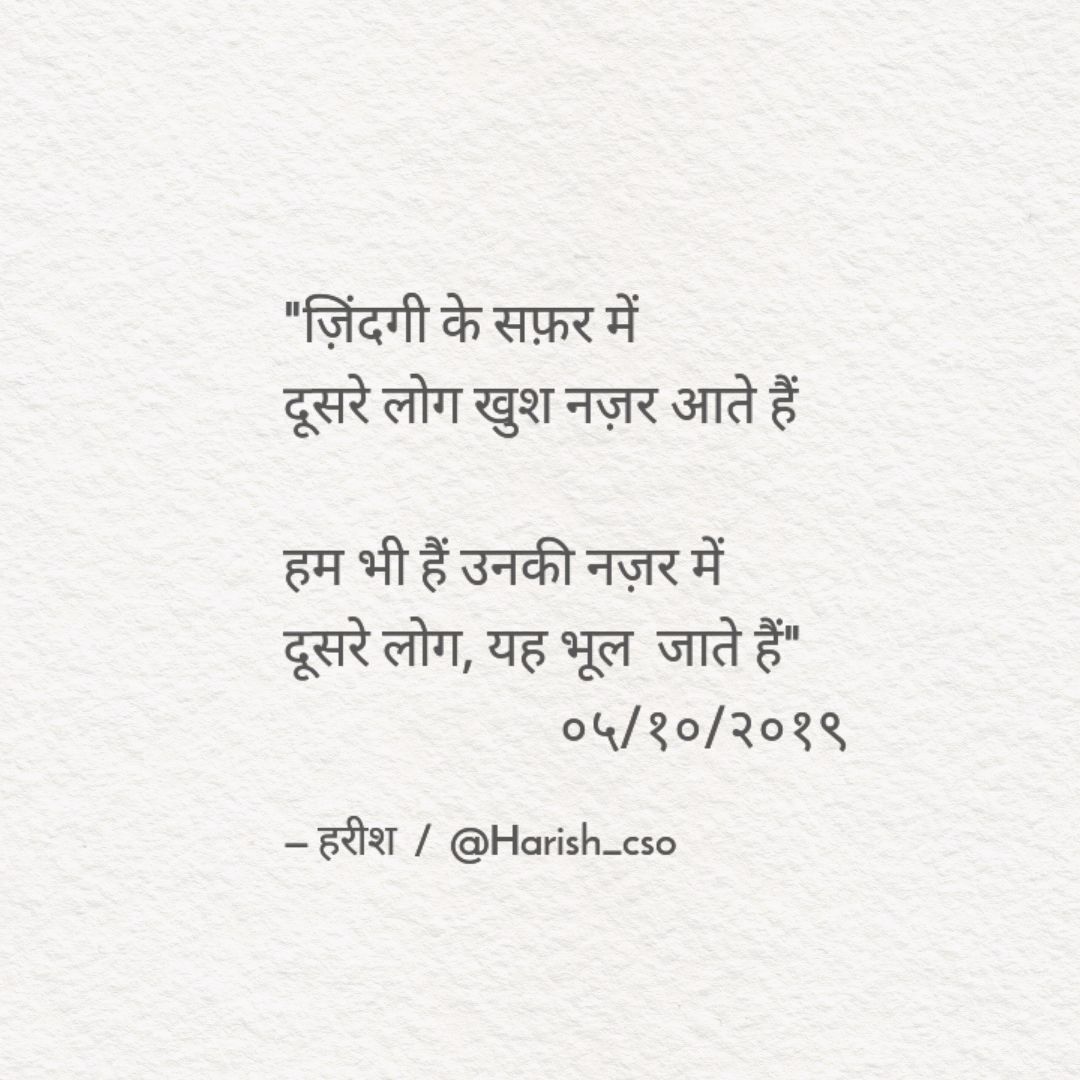 "ज़िंदगी के सफ़र में
दूसरे लोग खुश नज़र आते हैं
हम भी हैं उनकी नज़र में
दूसरे लोग, यह भूल  जाते हैं"
०५/१०/२०१९
– हरीश / @Harish_cso